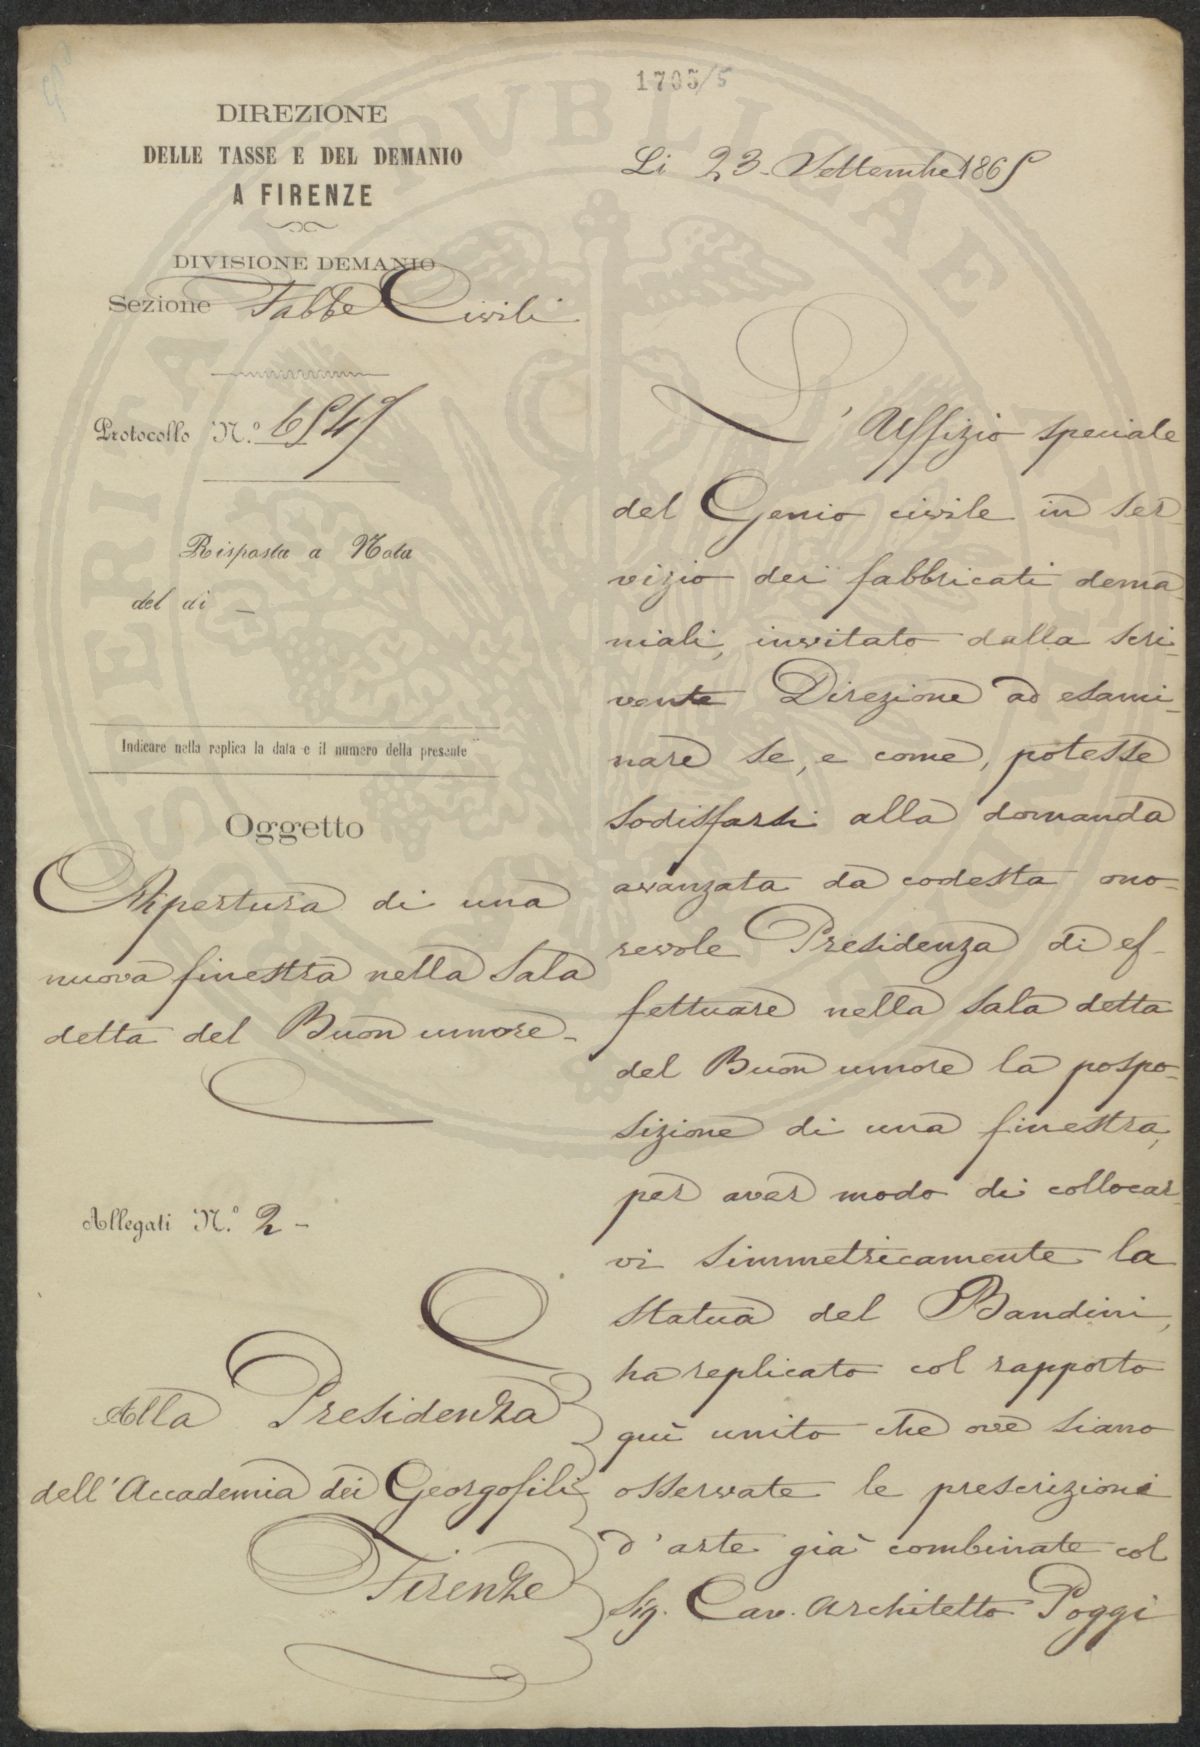 1705/5
DIREZIONE
DELLE TASSE E DEL DEMANIO
A FIRENZE
DIVISIONE DEMANIO
Sezione Fabbe Civili
Protocollo N.º 6547
Risposta a Nota
del dì –
Indicare nella replica la data e il numero della presente
Oggetto
Riapertura di una
nuova finestra nella Sala
detta del Buon umore –
Allegati N.º 2 –
Alla Presidenza
dell'Accademia dei Georgofili
Firenze
Li 23 Settembre 1865
L'Uffizio speciale
del Genio civile in ser-
vizio dei fabbricati dema-
niali, invitato dalla scri-
vente Direzione ad esami-
nare se, e come, potesse
sodisfarsi alla domanda
avanzata da codesta ono-
revole Presidenza di ef-
fettuare nella Sala detta
del Buon umore la pospo-
sizione di una finestra,
per aver modo di collocar-
vi simmetricamente la
statua del Bandini,
ha replicato col rapporto
quì unito che ove siano
osservate le prescrizioni
d'arte già combinate col
Sig. Cav. Architetto Poggi